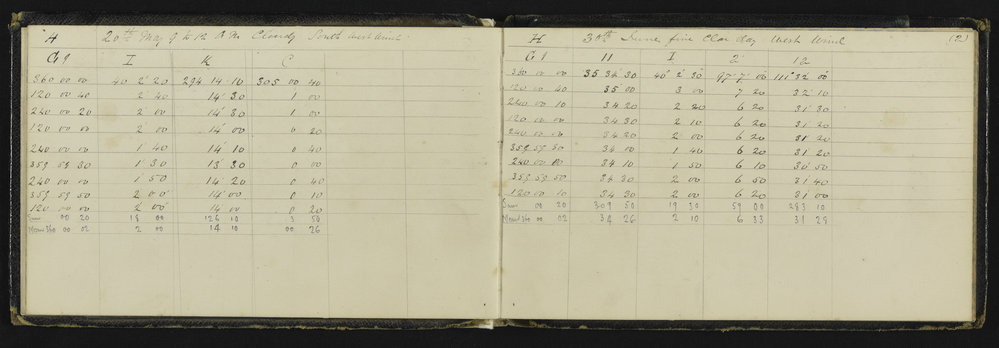 H 20th May 9 to 12 A M Cloudy South west wind
G 1 I K C
360 00 00 40 2 20 294 14 10 305 00 40
120 00 40 2 40 14 30 1 00
240 00 20 2 00 14 30 1 00
120 00 00 2 00 14 00 0 20
240 00 00 1 40 14 10 0 40
359 59 30 1 30 13 30 0 00
240 00 00 1 50 14 20 0 40
359 59 50 2 00 14 00 0 10
120 00 00 2 00 14 00 0 20
Sum 00 20 18 00 126 10 3 50
Mean 360 00 02 2 00 14 10 00 26
H 30th June fine Clear day West Wind (2)
G 1 11 I 2 12
360 00 00 35 34 30 40 2 30 97 7 00 111 32 00
120 00 40 35 00 3 00 7 20 32 10
240 00 10 34 20 2 20 6 20 31 30
120 00 00 34 30 2 10 6 20 31 20
240 00 00 34 20 2 00 6 20 31 20
359 59 50 34 00 1 40 6 20 31 20
240 00 00 34 10 1 50 6 10 30 50
359 59 50 34 30 2 00 6 50 31 40
120 00 10 34 20 2 00 6 20 31 00
Sum 00 20 309 50 19 30 59 00 283 10
Mean 360 00 02 34 26 2 10 6 33 31 28